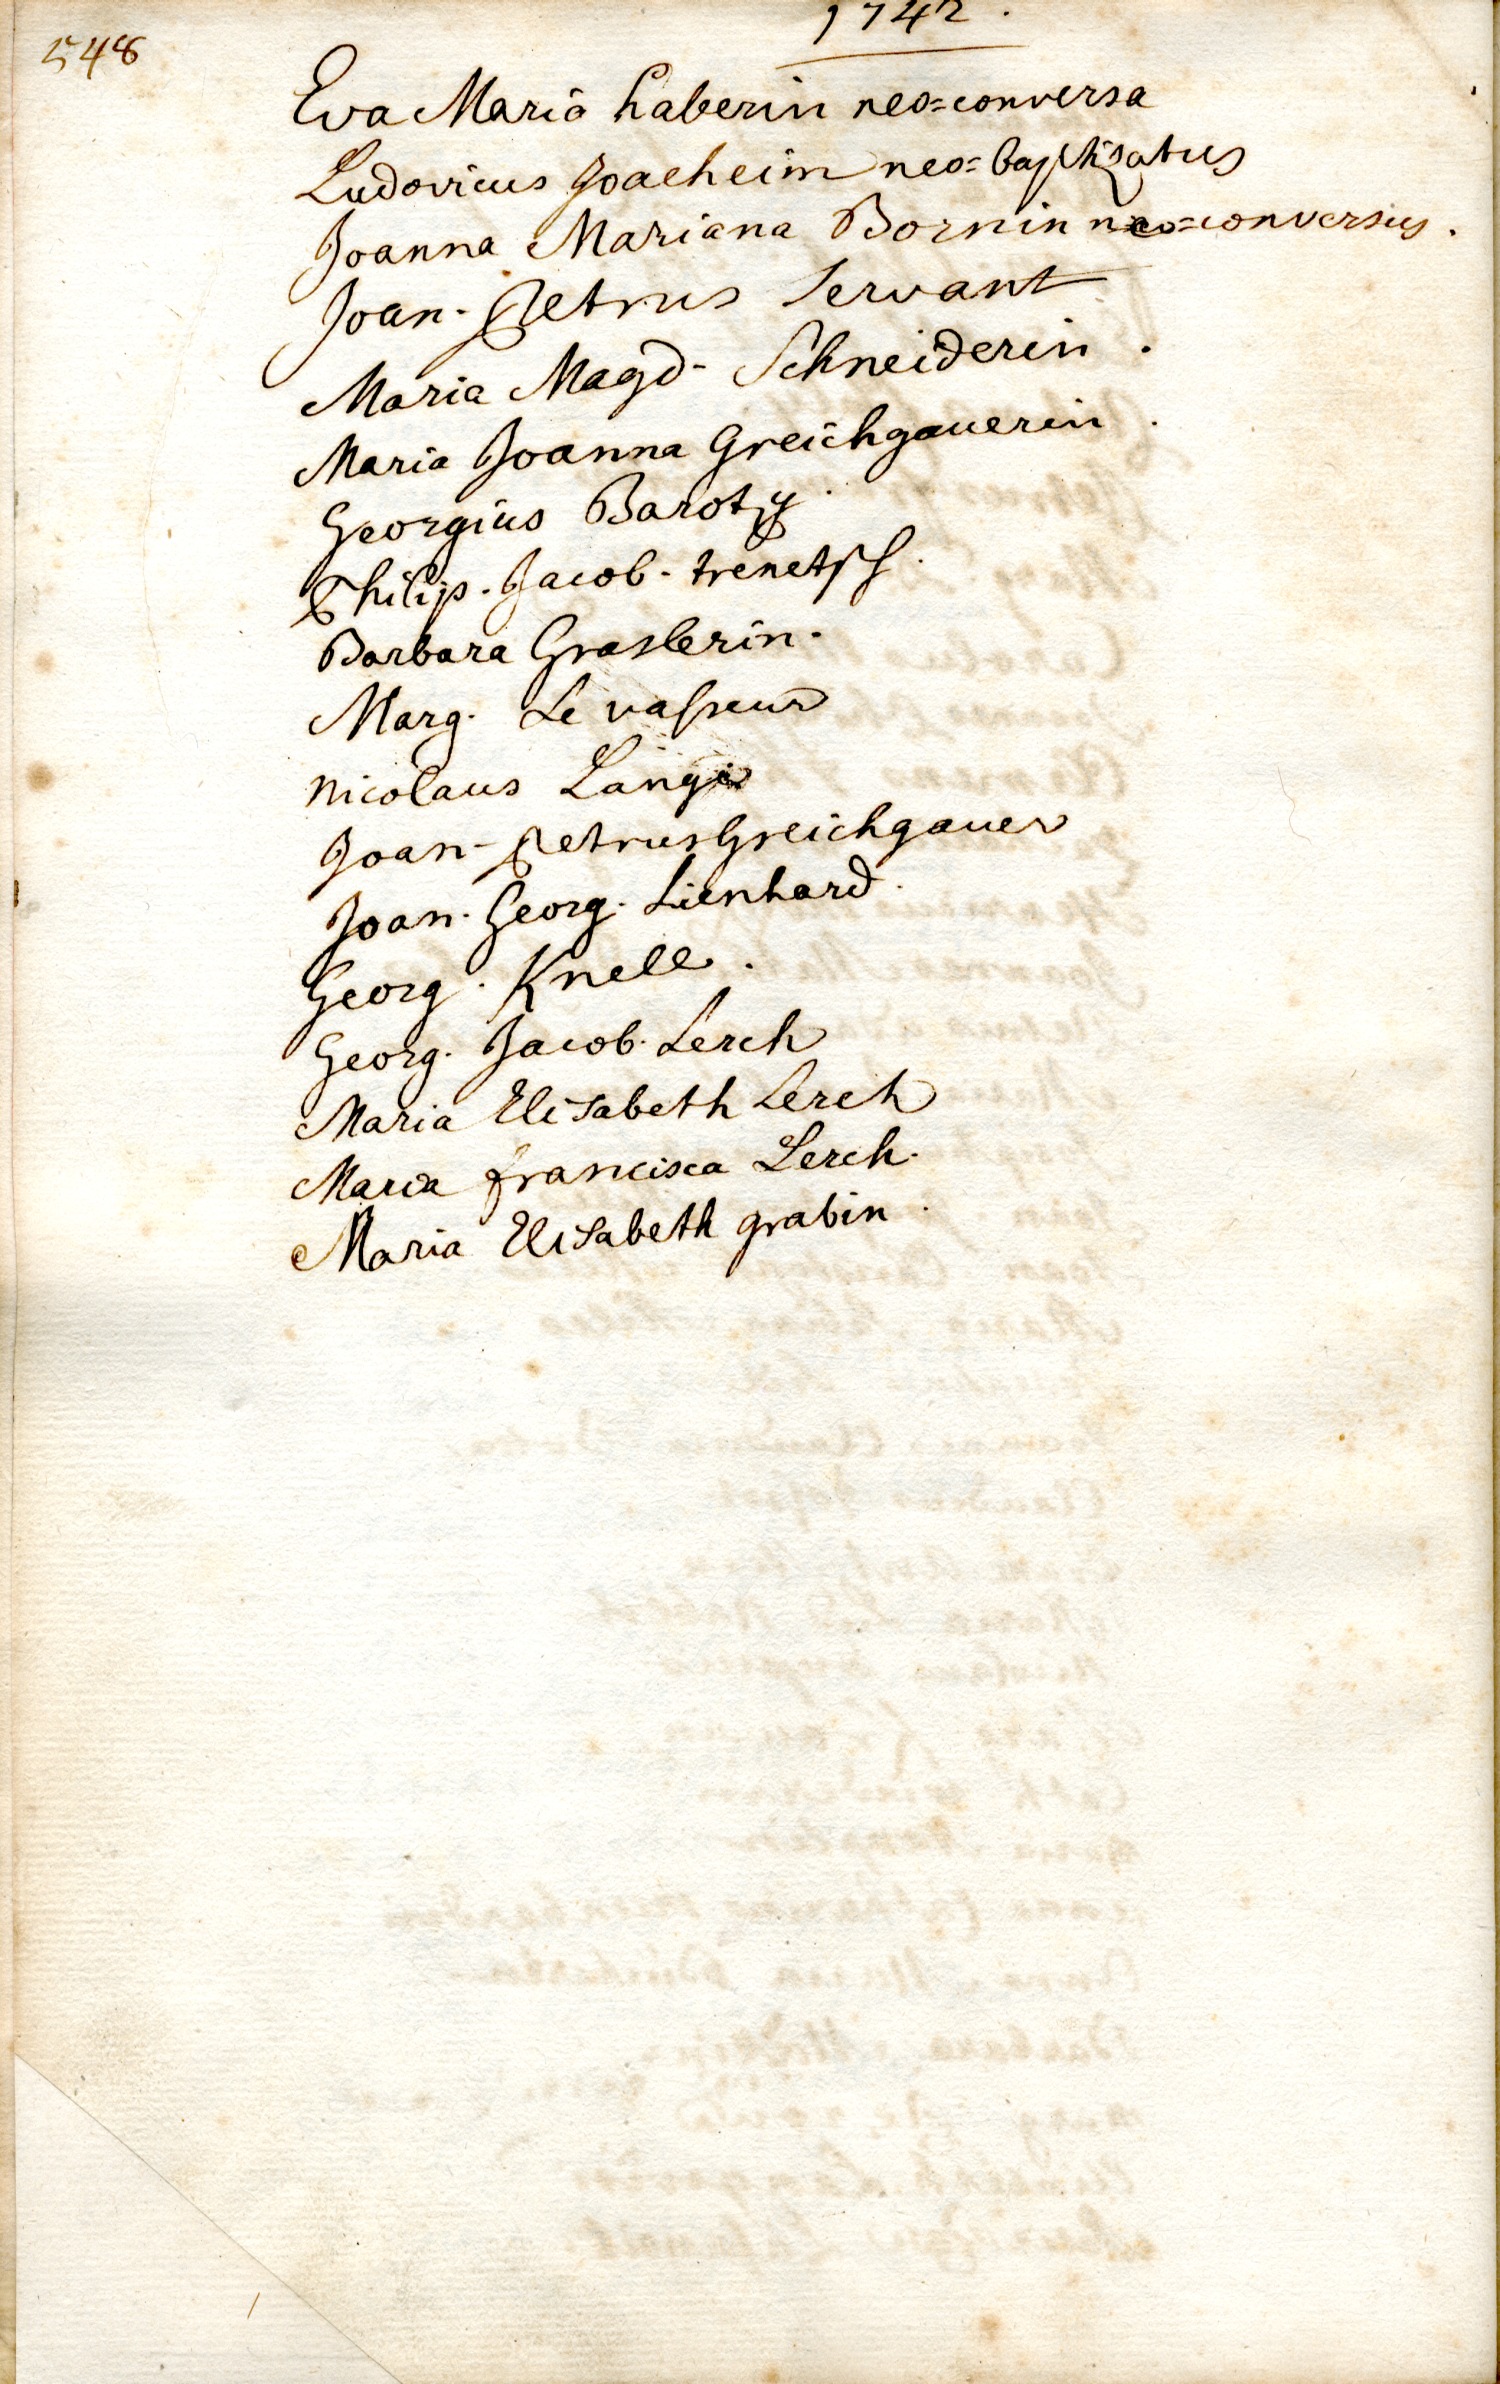 548
1742.
Eva Maria haberin neo=conversa
Ludovicus Joacheim neo=baptizatus
Joanna Mariana Bornin neo=conversus.
Joan. Petrus Servant
Maria Magd. Schneiderin.
Maria Joanna Greichgauerin.
Georgius Barotzy.
Philip. Jacob. trenetsch.
Barbara Graslerin.
Marg. Le vasseur
Nicolaus Lang
Joan. Petrus Greichgauer
Joan. Georg. Lienhard.
Georg. Knell.
Georg. Jacob. Lerch
Maria Elisabeth Lerch
Maria francisca Lerch.
Maria Elisabeth grabin.